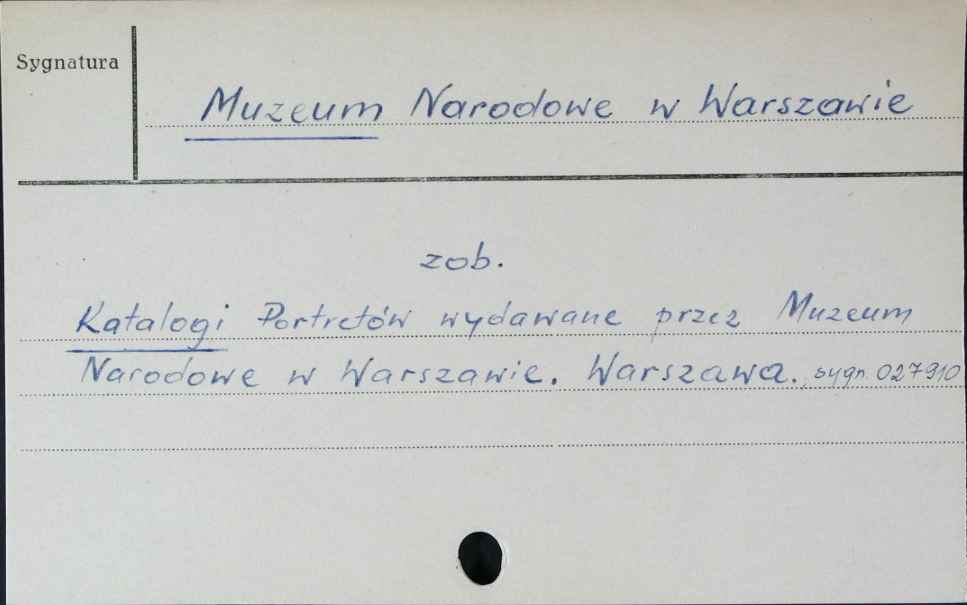 Sygnatura
Muzeum Narodowe w Warszawie
zob.
Katalogi Portretów wydawane przez Muzeum
Narodowe w Warszawie. Warszawa. sygn. 027910